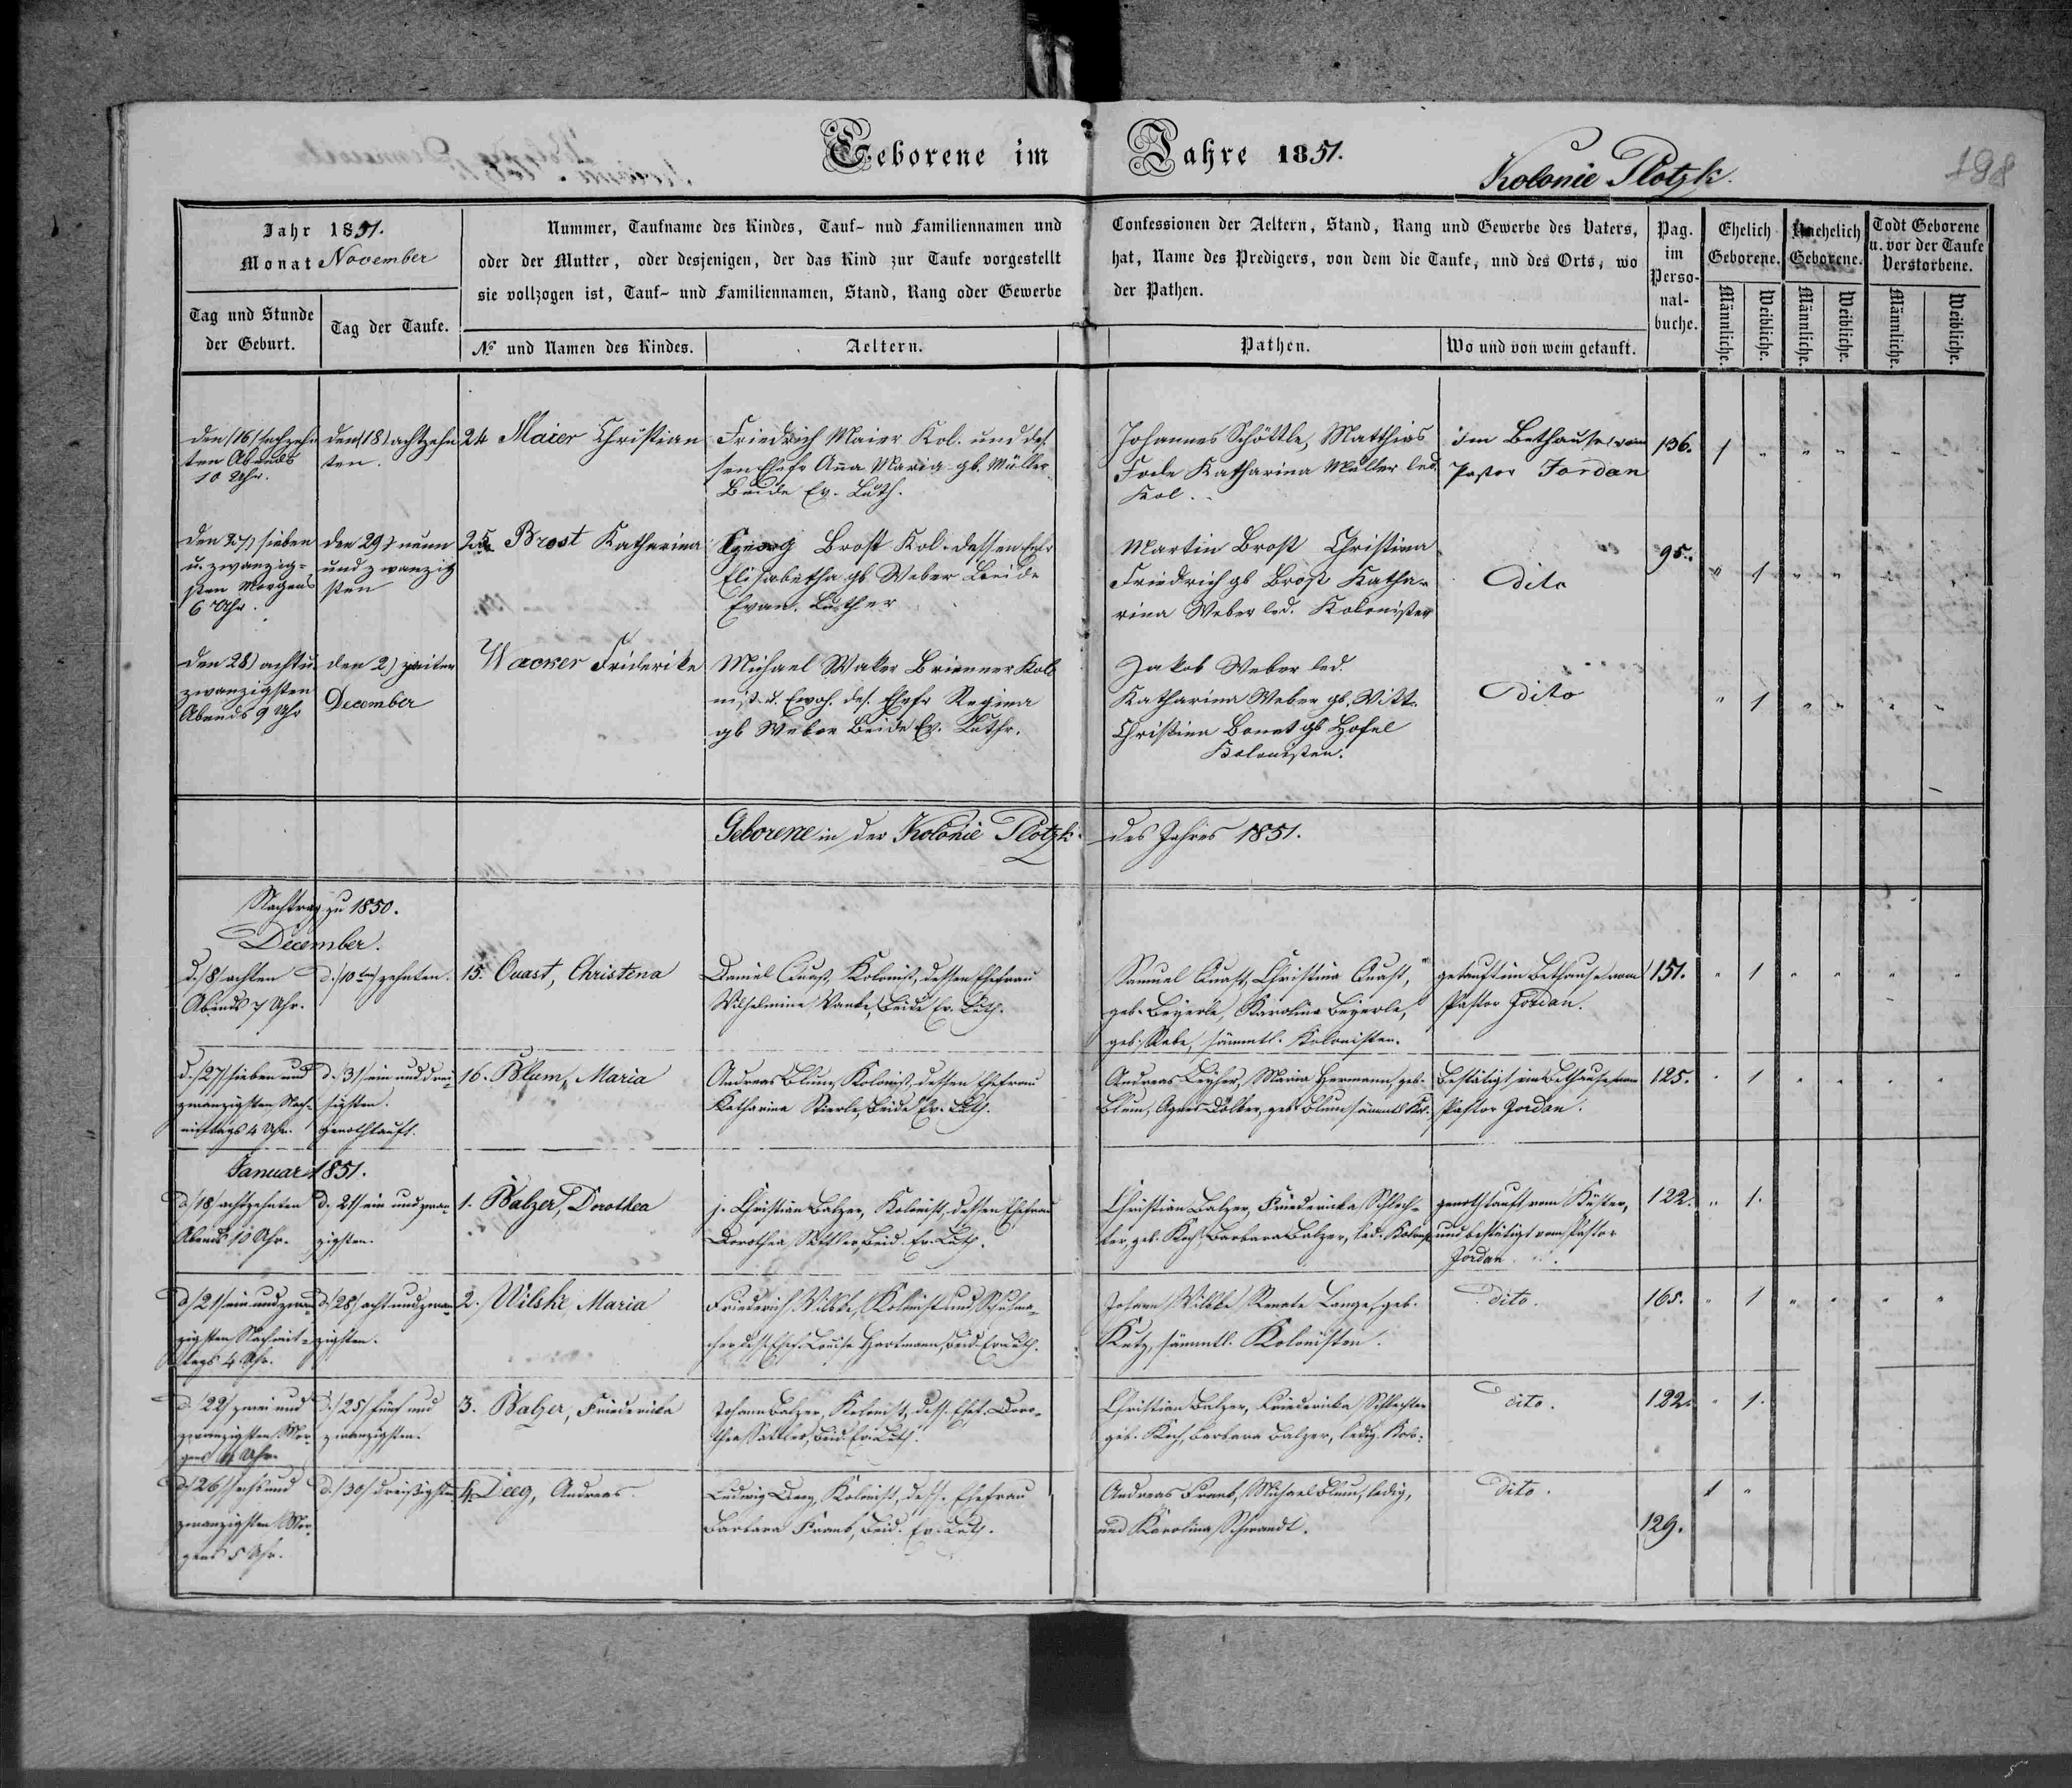 Geborene im Jahre 1851.
Kolonie Plotzk.
198
Jahr 1851.
Monat November
Tag und Stunde
der Geburt.
Tag der Taufe.
Nummer, Taufname des Kindes, Tauf- und Familiennamen und
oder der Mutter, oder desjenigen, der das Kind zur Taufe vorgestellt
sie vollzogen ist, Tauf- und Familiennamen, Stand, Rang oder Gewerbe
№ und Namen des Kindes.
Aeltern.
Confessionen der Aeltern, Stand, Rang und Gewerbe des Vaters,
hat, Name des Predigers, von dem die Taufe, und des Orts, wo
der Pathen.
Pathen.
Wo und von wem getauft.
Pag.
im
Perso-
nal-
buche.
Ehelich
Geborene.
Unehelich
Geborene.
Todt Geborene
u. vor der Taufe
Verstorbene.
Männliche.
Weibliche.
Männliche.
Weibliche.
Männliche.
Weibliche.
den (16) sechzehn
ten Abends
10 Uhr.
den (18) achtzehn
ten.
24 Maier Christian
Friedrich Maier Kol. und des
sen Ehefr Anna Maria gb. Müller
Beide Ev. Luth.
Johannes Schöttle, Matthias
Katharina Müller led.
Kol.
im Bethause vom
Pastor Jordan
136.
1
den 27) sieben
u. zwanzig-
sten Morgens
6 Uhr.
den 29) neun
und zwanzig
sten
25 Brost Katharina
Georg Brost Kol. dessen Ehfr
Elisabetha gb Weber Beide
Evan. Luther
Martin Brost Christina
Friedrich gb Brost Katha-
rina Weber led. Kolonisten
dito
95.
1
den 28) acht u.
zwanzigsten
Abends 9 Uhr
den 2) zweiten
December
Wacker Friderike
Michael Waker Brienner Kolo
nist u. des. Ehefr Regina
gb Weber Beide Ev. Luthr.
Jakob Weber led.
Katharina Weber gb. Witt.
Christina Bonet gb Hofel
Kolonisten.
dito
1
Geborene in der Kolonie Plotzk des Jahres 1851.
Nachtrag zu 1850.
December.
d. /8/ achten
Abends 7 Uhr.
d. /10ten/ zehnten.
15. Quast, Christina
Daniel Quast, Kolonist, dessen Ehefrau
Wilhelmine Manke, Beide Ev. Luth.
Samuel Quast, Christina Quast,
geb. Beyerle, Karolina Beyerle,
geb. Rebe, sämmtl. Kolonisten.
getauft im Bethause vom
Pastor Jordan.
151.
1
d. /27/ sieben und
zwanzigsten Nach-
mittags 4 Uhr.
d. /31/ ein und drei-
sigsten.
genothtauft.
16. Blum, Maria
Andreas Blum, Kolonist, dessen Ehefrau
Katharina Stierle, Beide Ev. Luth.
Andreas Maria Hermann, geb.
Blum, Agnes geb. Blum sämmtl. Kol.
Bestätigt im Bethause vom
Pastor Jordan.
125.
1
Januar 1851.
d. /18/ achtzehnten
Abends 10 Uhr.
d. 21/ ein und zwan-
zigsten.
1. Balzer, Dorothea
j. Christian Balzer, Kolonist, dessen Ehefrau
Dorothea Sattler, Beid. Ev. Luth.
Christian Balzer, Friedericka Schlech-
ter, geb. Koch, Barbara Balzer, led. Kolonist
genothtauft vom Küster,
und bestätigt vom Pastor
Jordan.
122.
1.
d. /21/ ein und zwan-
zigsten Nachmit-
tags 4 Uhr.
d. /28/ acht und zwan-
zigsten.
2. Wilske, Maria
Friederich Wilske, Kolonist und Schuhma-
cher, dess. Ehef. Louise Hartmann, Beid. Ev. Luth.
Johann Wilske, Renate Lange, geb.
Kutz, sämmtl. Kolonisten.
dito.
165.
1
d. /22/ zwei und
zwanzigsten Mor-
gens Uhr.
d. /25/ fünf und
zwanzigsten.
3. Balzer, Friedericka
Johann Balzer, Kolonist, dess. Ehef. Doro-
thea Sattler, Beid. Ev. Luth.
Christian Balzer, Friedericka Schlechter
geb. Koch, Barbara Balzer, ledig. Kol.
dito.
122.
1.
d. /26/ sechs und
zwanzigsten Mor-
gens 5 Uhr.
d. /30/ dreißigsten
4. Deeg, Andreas
Ludwig Deeg, Kolonist, dess. Ehefrau
Barbara Frank, Beid. Ev. Luth.
Andreas Frank, Michael Blum, ledig,
und Karolina Schwandt.
dito.
129.
1